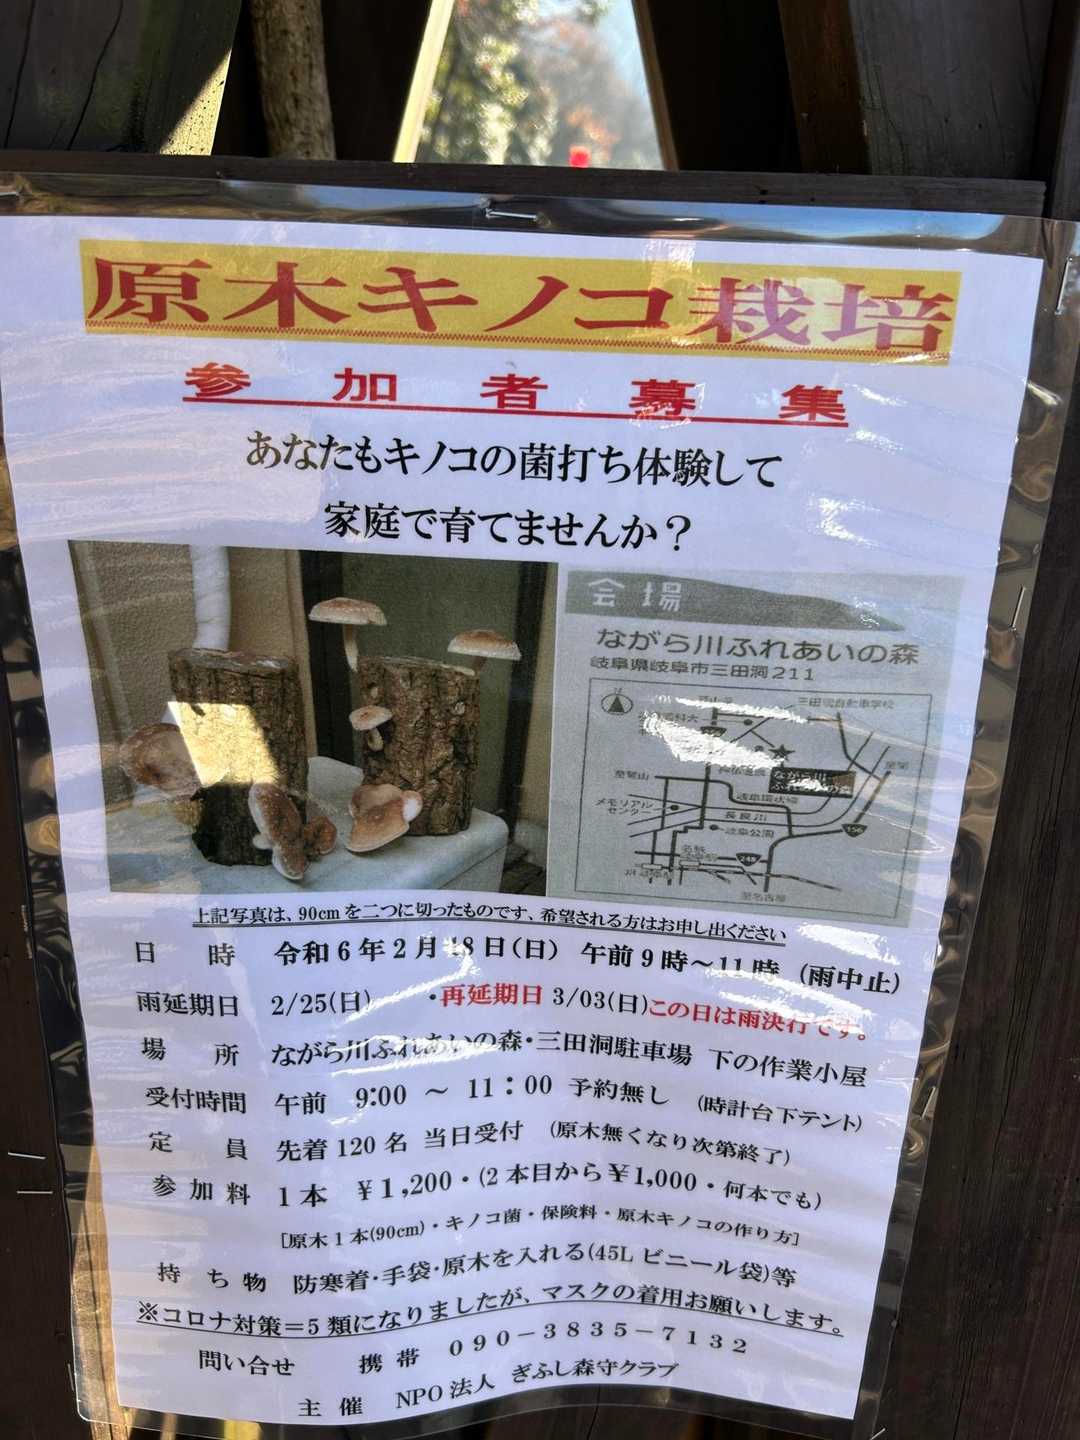 原木キノコ栽培
参加者募集
あなたもキノコの菌打ち体験して
家庭で育てませんか？
会場
ながら川ふれあいの森
岐阜県岐阜市三田洞211
三田洞自動車学校
至関
ながら川
ふれあいの森
岐阜環状線
メモリアル
センター
長良川
岐阜公園
156
名鉄
248
至名古屋
上記写真は、90cmを二つに切ったものです、希望される方はお申し出ください
日時 令和6年2月18日(日) 午前9時～11時 (雨中止)
雨延期日 2/25(日) ・再延期日 3/03(日)この日は雨決行です。
場所 ながら川ふれあいの森・三田洞駐車場 下の作業小屋
受付時間 午前 9:00 ～ 11：00 予約無し (時計台下テント)
定員 先着120名 当日受付 (原木無くなり次第終了)
参加料 1本 ¥1,200・(2本目から¥1,000・何本でも)
[原木1本(90cm)・キノコ菌・保険料・原木キノコの作り方]
持ち物 防寒着・手袋・原木を入れる(45Lビニール袋)等
※コロナ対策＝5類になりましたが、マスクの着用お願いします。
問い合せ 携帯 090－3835－7132
主催 NPO法人 ぎふし森守クラブ